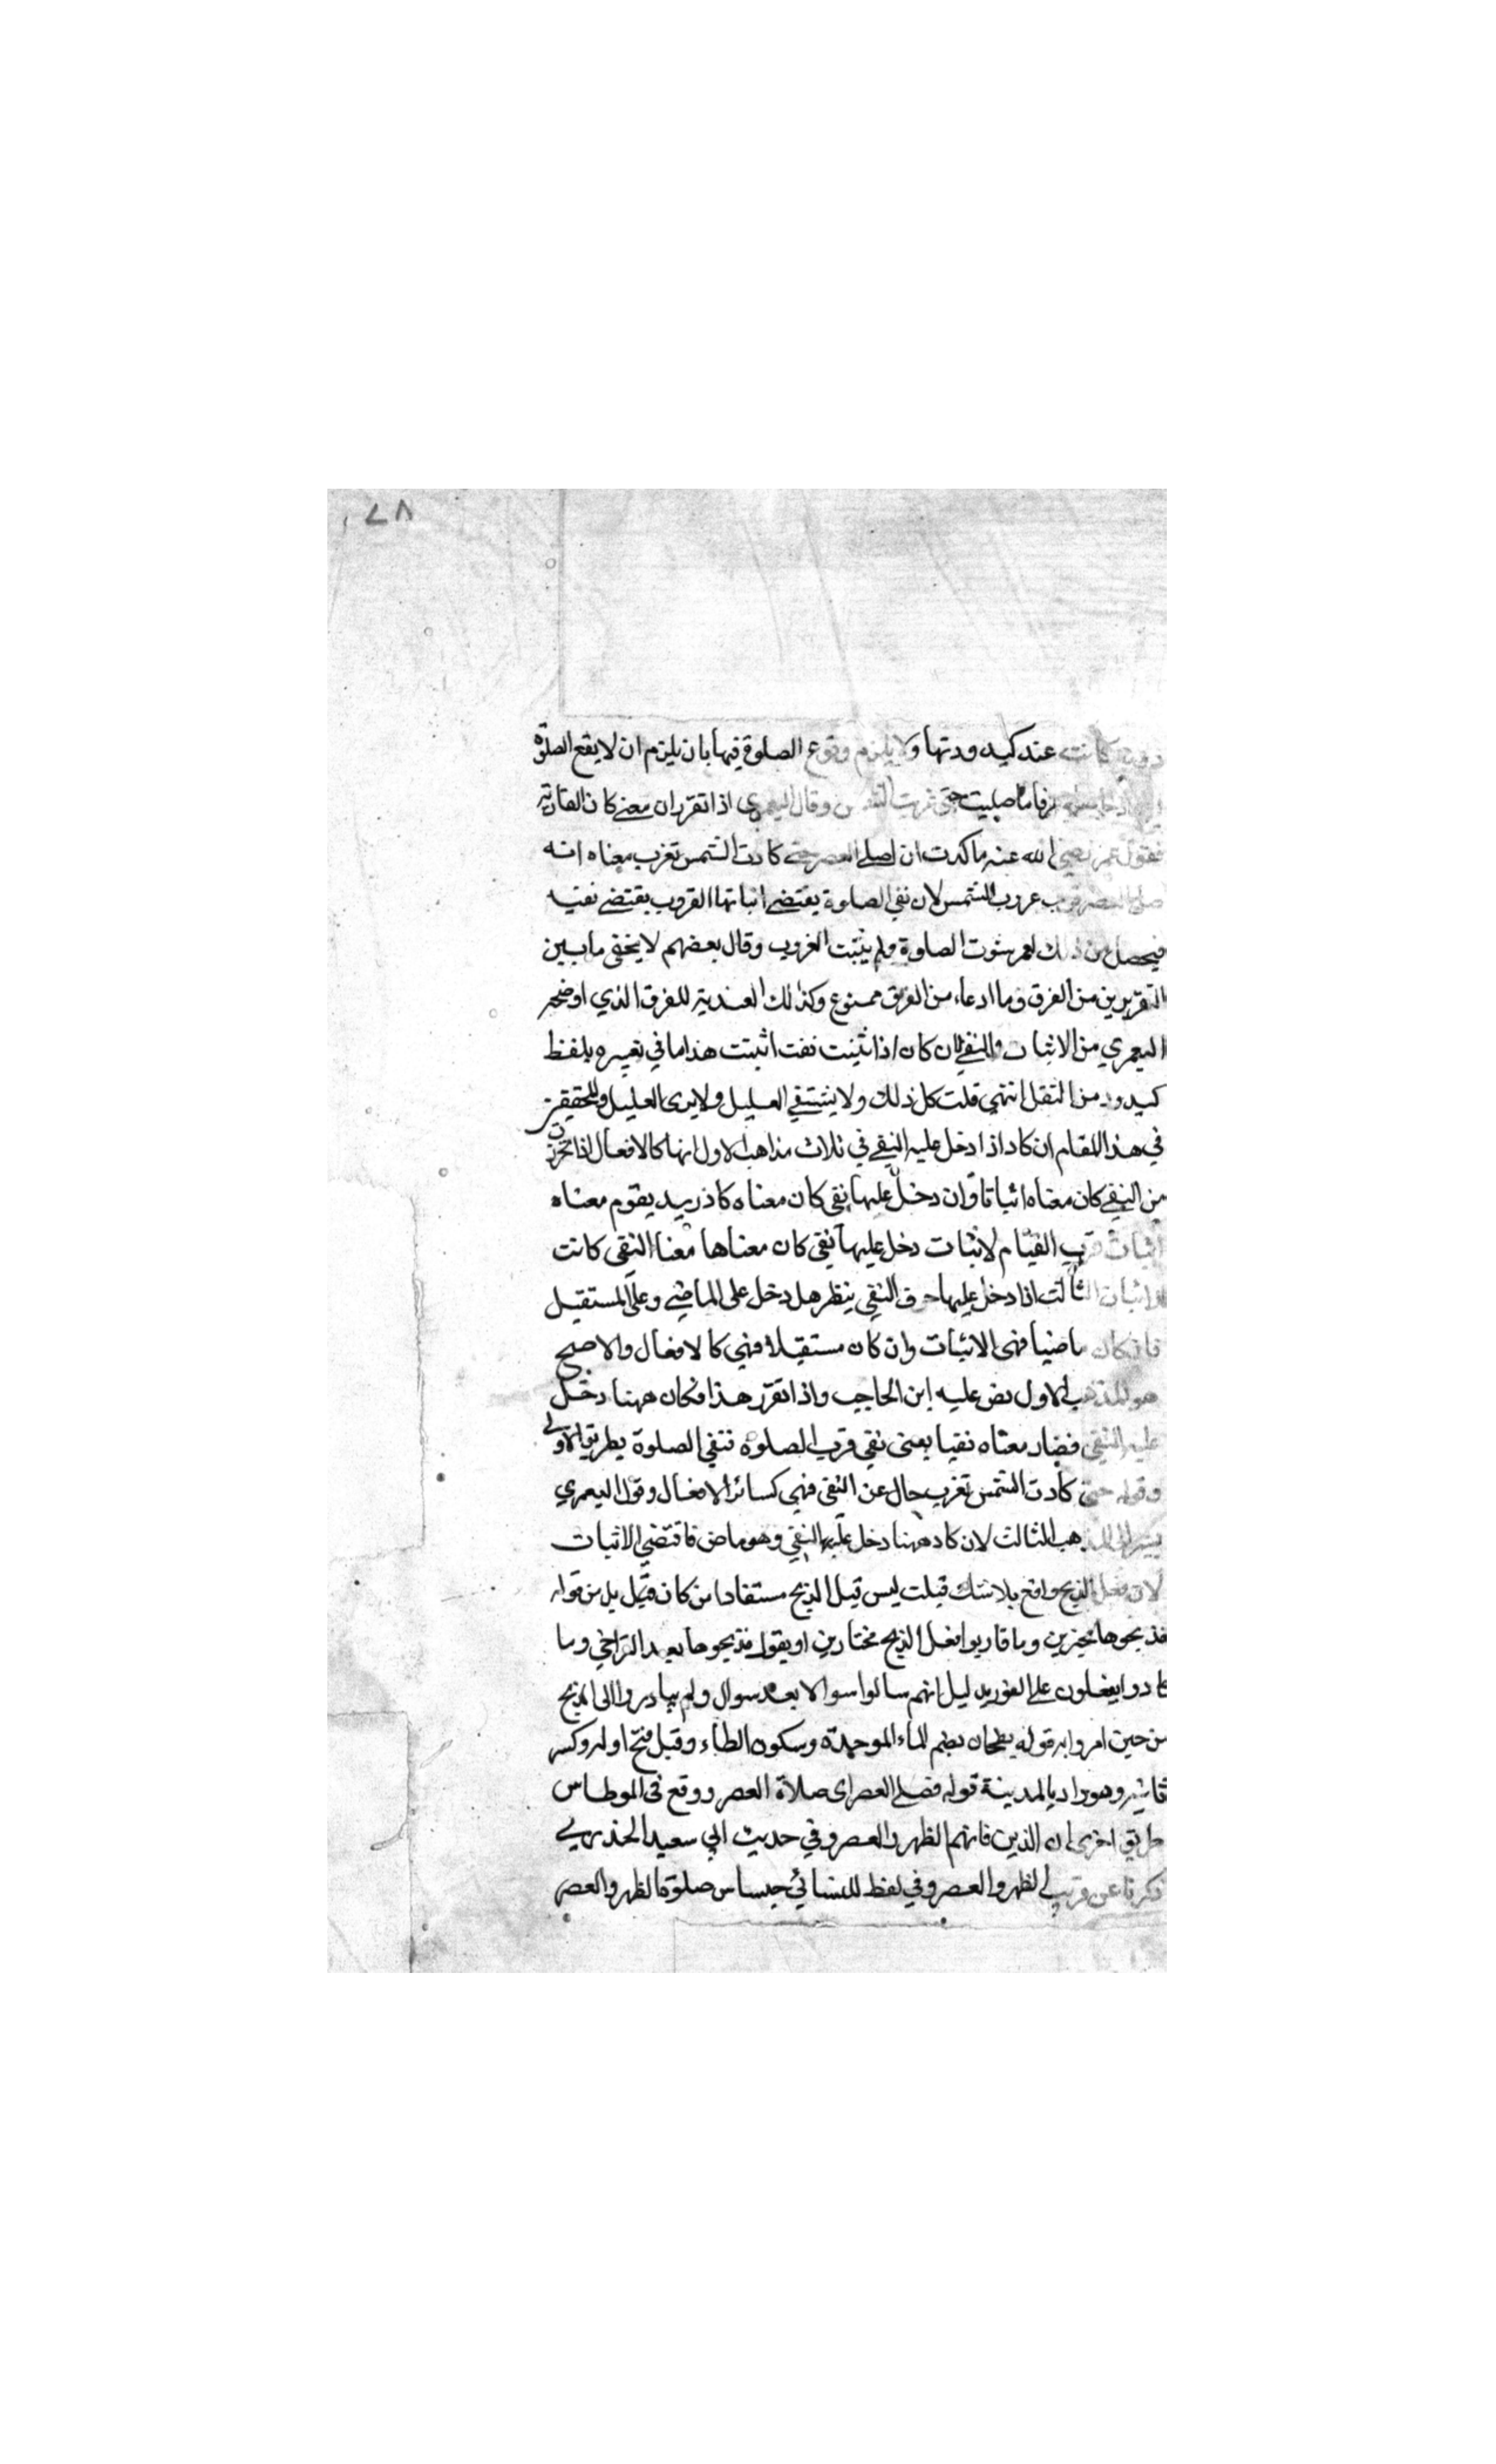 ٧٨
كانت عند كيدودتها ولا يلزم وقوع الصلوة فيها بان يلزم ان لا يقع الصلوة
ما صليت حتى غربت الشمس وقال اليعمري اذا تقرر ان معنى كاد المقاربة
فقول عمر رضي الله عنه ما كدت ان اصلي العصر حتى كادت الشمس تغرب معناه انه
صلى العصر قرب غروب الشمس لان نفي الصلوة يقتضي اثباتها القروب يقتضي نفيه
فيحصل من ذلك لعمر ثبوت الصلوة ولم يثبت الغروب وقال بعضهم لا يخفى ما بين
التقريرين من الفرق وما ادعاه من الفرق ممنوع وكذلك العندية للفرق الذي اوضحه
اليعمري من الاثبات والنفي لان كاد اذا اثبتت نفت اثبتت هذا ما في تعبيره بلفظ
كيدودة من الثقل انتهى قلت كل ذلك ولا يشتفي العليل ولا يروى الغليل والتحقيق
في هذا المقام ان كاد اذا دخل عليه النفي في ثلاث مذاهب الاول انها كالافعال اذا تجردت
من النفي كان معناه اثباتا وان دخل عليها نفي كان معناه كاد زيد يقوم معناه
اثبات قرب القيام لاثبات دخل عليها نفي كان معناها معنا النفي كانت
الاثبات الثالث اذا دخل عليها حرف النفي ينظر هل دخل على الماضي وعلى المستقبل
فان كان ماضيا فهي الاثبات وان كان مستقبلا فهي كالافعال والاصح
هو المذهب الاول نص عليه ابن الحاجب واذا تقرر هذا فكان ههنا دخل
عليه النفي فصار معناه نفيا يعني نفي قرب الصلوة فنفي الصلوة بطريق الاولى
وقوله حتى كادت الشمس تغرب حال عن النفي فهي كسائر الافعال وقول اليعمري
يشير الى المذهب الثالث لان كاد ههنا دخل عليها النفي وهو ماض فاقتضى الاثبات
لان فعل الذبح واقع بلا شك قبلت ليس قيل الذبح مستفادا من كان قيل بل من قوله
فذبحوها مجيزين وما قاربوا فعل الذبح مختارين او يقول فذبحوها بعد التراخي وما
كادوا يفعلون على الفور بدليل انهم سالوا سوالا بعد سوال ولم يبادروا الى الذبح
من حين امروا به قوله بطحان بضم الباء الموحدة وسكون الطاء وقيل فتح اوله وكسر
ثانيه وهو واد بالمدينة قوله فصلى العصر اى صلاة العصر ووقع في الموطا من
طريق اخرى ان الذين فاتهم الظهر والعصر وفي حديث ابي سعيد الخدري
ذكرنا عن قريب الظهر والعصر وفي لفظ للنسائي حبسنا من صلوة الظهر والعصر